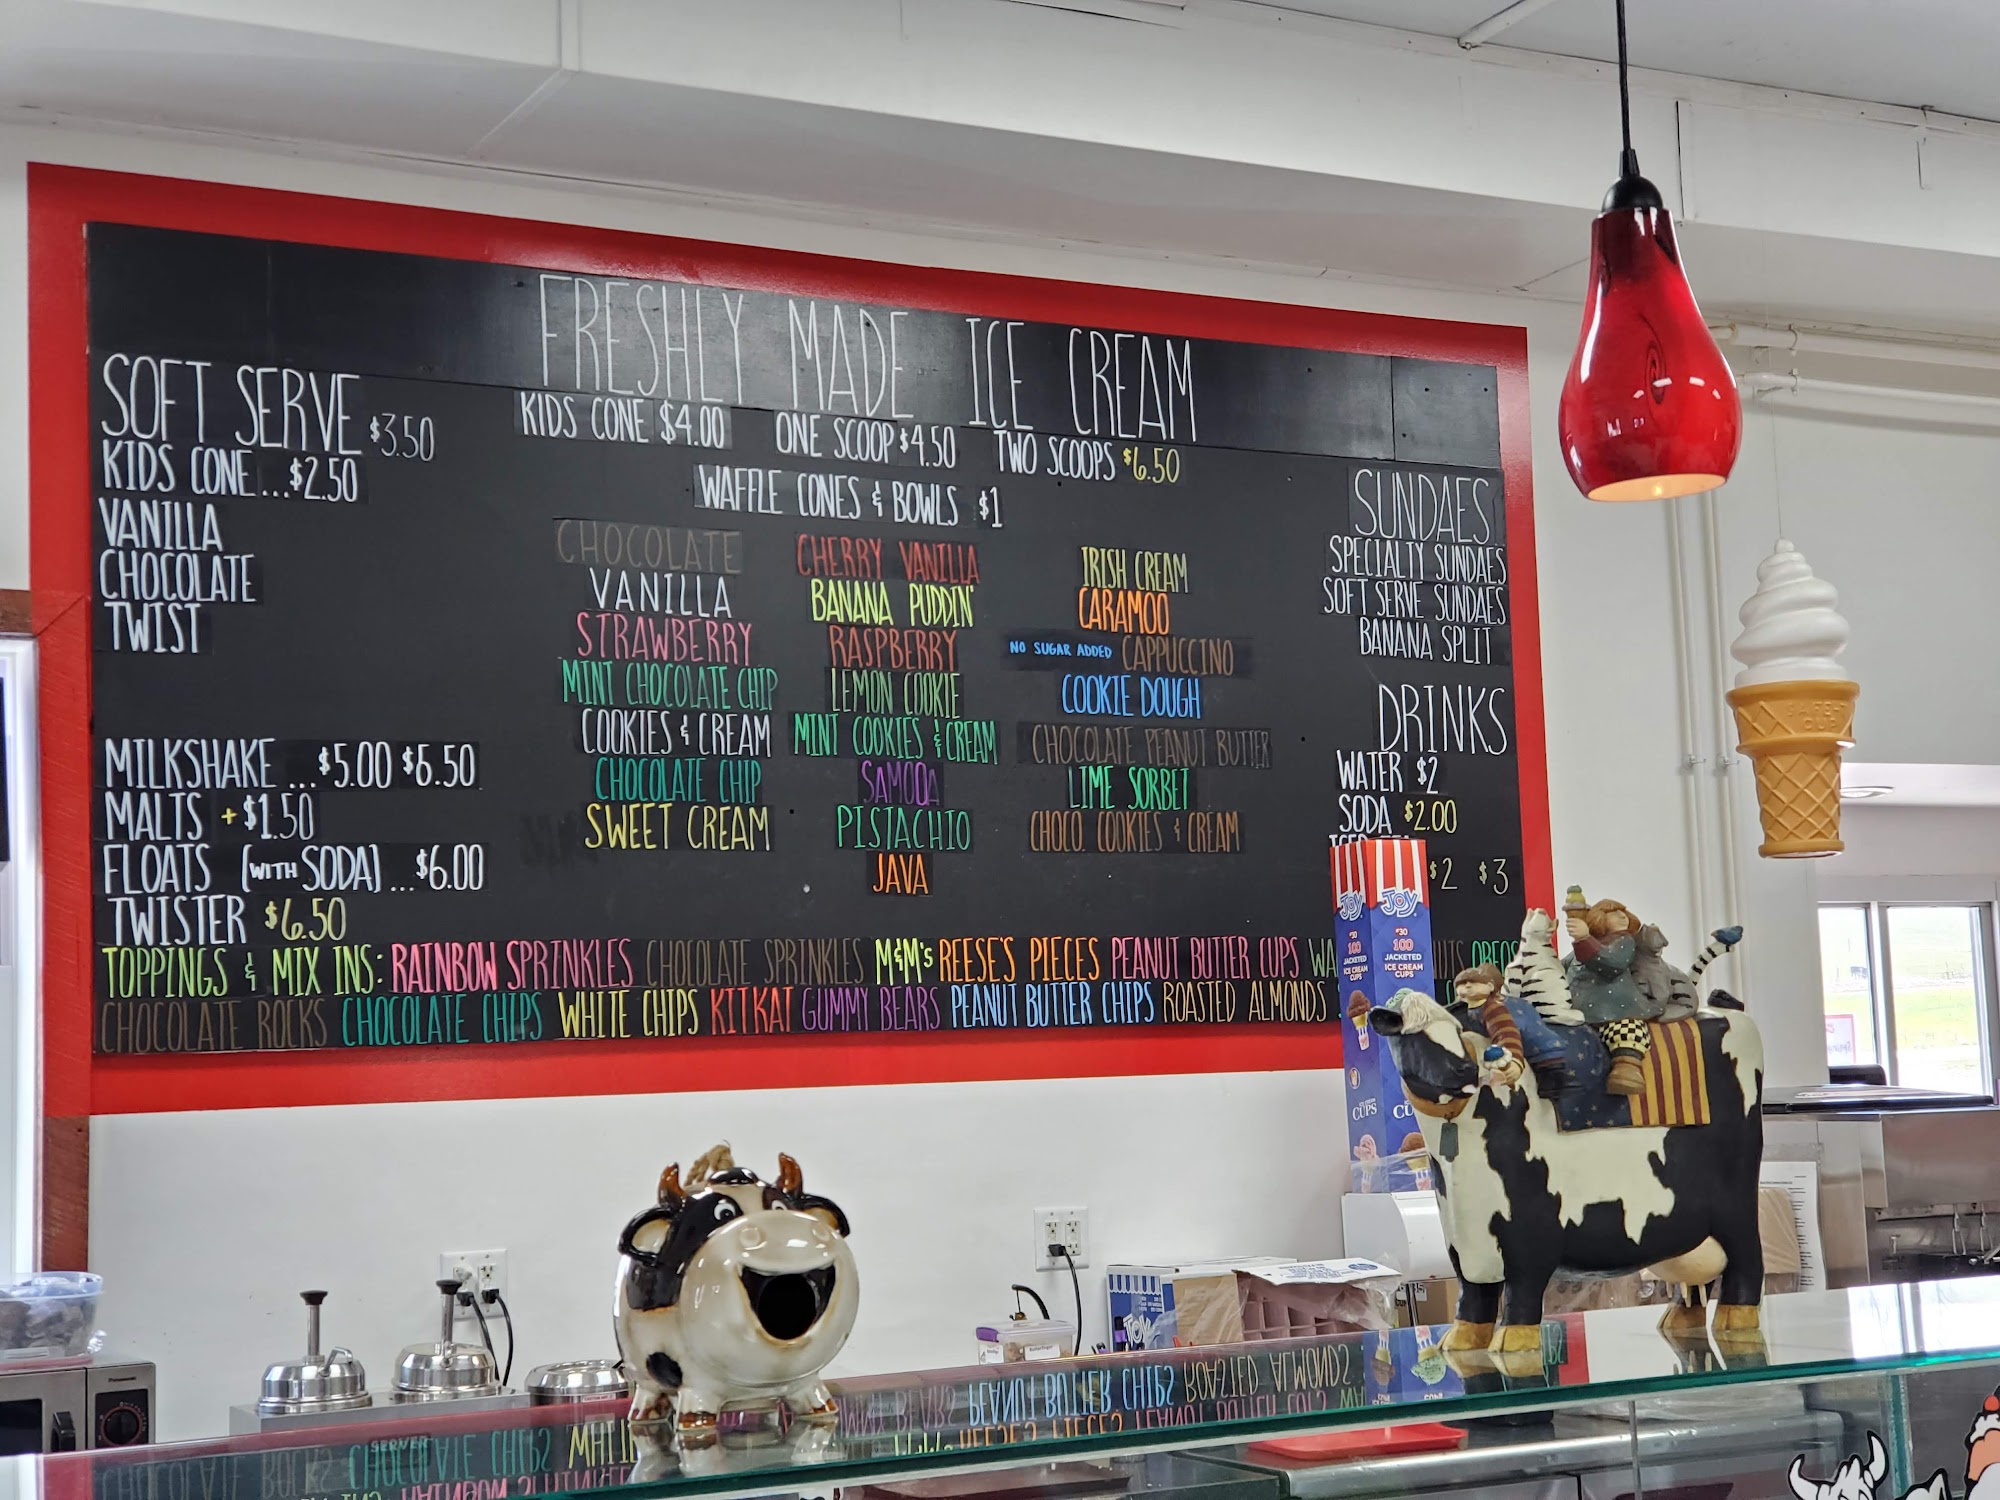 FRESHLY MADE ICE CREAM
KIDS CONE $4.00 ONE SCOOP $4.50 TWO SCOOPS $6.50
WAFFLE CONES & BOWLS $1
SOFT SERVE $3.50
KIDS CONE...$2.50
VANILLA
CHOCOLATE
TWIST
MILKSHAKE ...$5.00 $6.50
MALTS +$1.50
FLOATS (WITH SODA)...$6.00
TWISTER $6.50
CHOCOLATE
VANILLA
STRAWBERRY
MINT CHOCOLATE CHIP
COOKIES & CREAM
CHOCOLATE CHIP
SWEET CREAM
CHERRY VANILLA
BANANA PUDDIN'
RASPBERRY
LEMON COOKIE
MINT COOKIES & CREAM
SAMODA
PISTACHIO
JAVA
IRISH CREAM
CARAMOO
NO SUGAR ADDED CAPPUCCINO
COOKIE DOUGH
CHOCOLATE PEANUT BUTTER
LIME SORBET
CHOCO. COOKIES & CREAM
SUNDAES
SPECIALTY SUNDAES
SOFT SERVE SUNDAES
BANANA SPLIT
DRINKS
WATER $2
SODA $2.00
$2 $3
TOPPINGS & MIX INS: RAINBOW SPRINKLES CHOCOLATE SPRINKLES M&M's REESE'S PIECES PEANUT BUTTER CUPS OREOS
CHOCOLATE ROCKS CHOCOLATE CHIPS WHITE CHIPS KIT KAT GUMMY BEARS PEANUT BUTTER CHIPS ROASTED ALMONDS
JOY JOY
#30 #30
100 100
JACKETED JACKETED
ICE CREAM ICE CREAM
CUPS CUPS
CUPS
JOY
SERVER